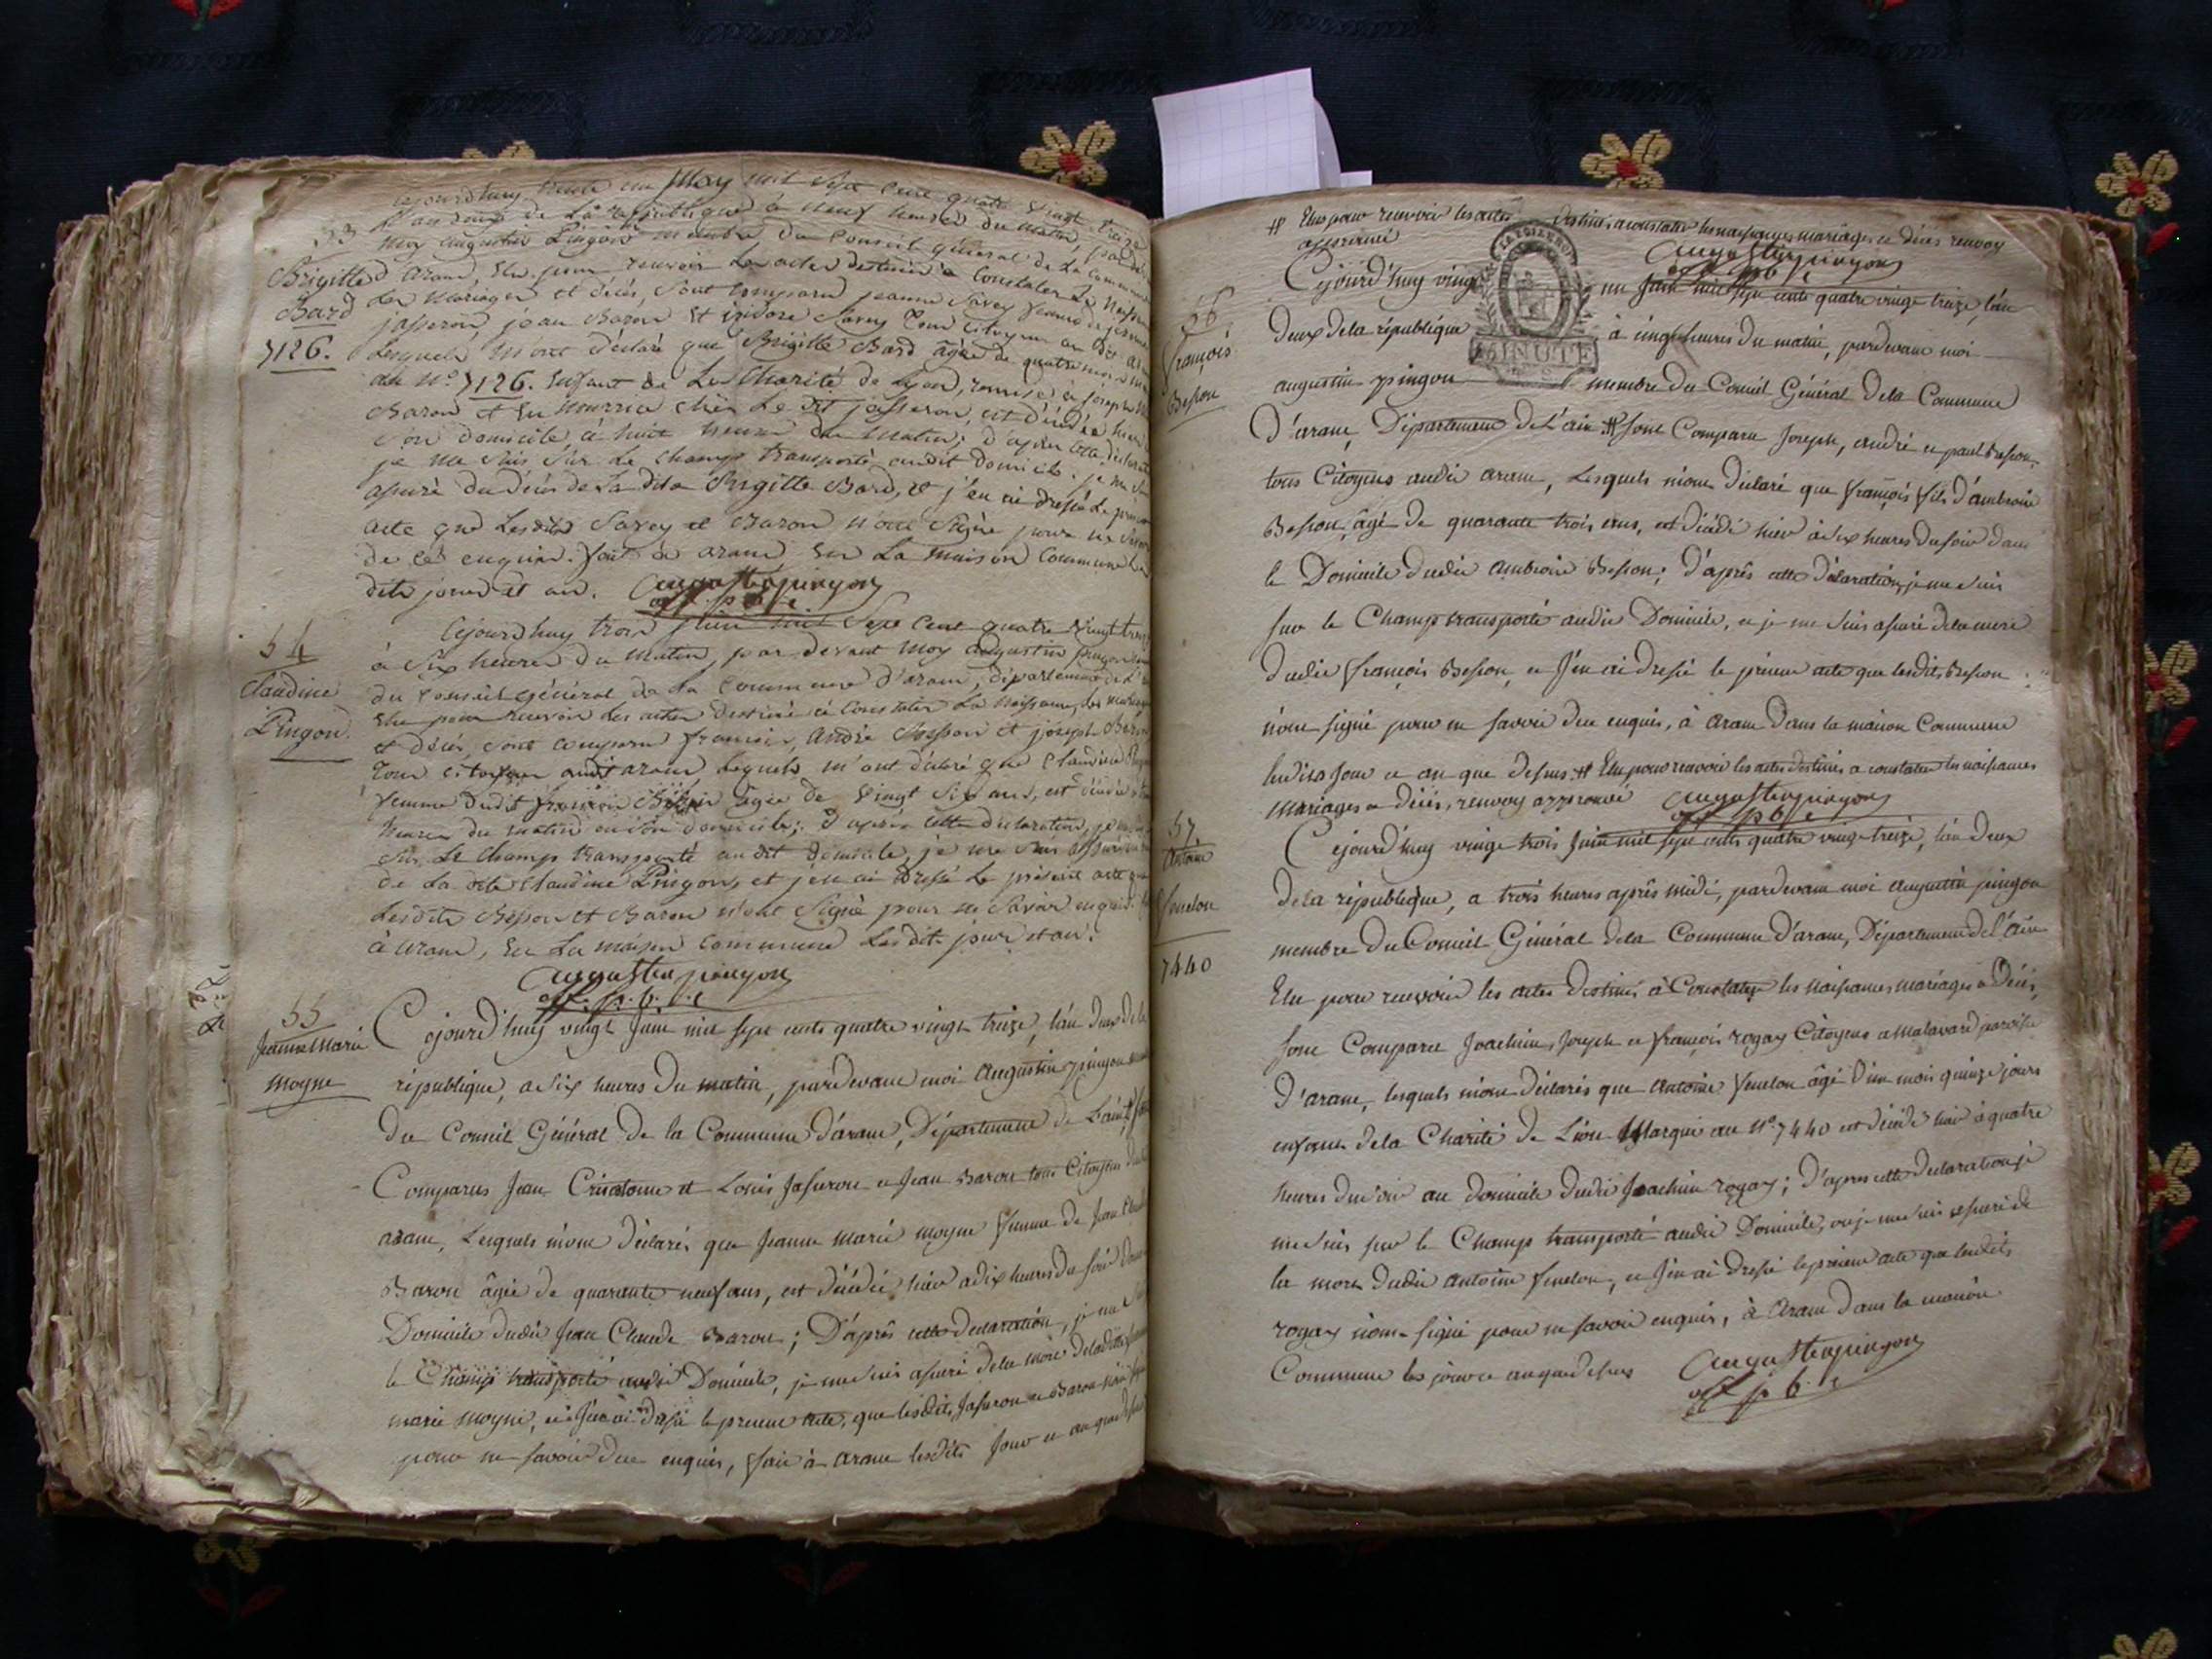 53
Brigitte
Bard
7126.
cejourd'huy trente un May mil Sept Cent quatre Vingt treize
L'an deux de La République à neuf heures du matin, par de
moy augustin Pingon membre du Conseil général de La Commune
d'aranc, Elu pour recevoir Les actes destinés à Constater Les Naissa
Les Mariages et décès, sont comparu jeanne Savey femme de
jasseron, jean Baron Et isidore Savey tous Citoyens au dit
Lesquels m'ont déclaré que Brigitte Bard âgée de quatre mois
du N° 7126. Enfant de La Charité de Lyon, remise à joseph
Baron et En nourrice chés Le dit jasseron, est décédée hier
son domicile à huit heures du Matin; d'après cette déclarat
je me suis sur Le champ transporté audit domicile. je me suis
assuré du décès de La dite Brigitte Bard, et j'en ai dressé Le presen
acte que Lesdits Savey et Baron n'ont Signé pour ne Savoir
de ce enquis. fait à aranc En La maison Commune Les
dits jour et an. augustin pingon
off. p. b. c
54
Claudine
Pingon
Cejourd'huy trois juin mil Sept Cent quatre Vingt treize
à Six heures du matin, par devant moy augustin pingon
du Conseil général de La Commune d'aranc, département de
Elu pour recevoir Les actes destinés à Constater La Naissance, les mariages
et décès, sont comparu françois, André Besson et joseph Baron
tous citoyens audit aranc, lesquels m'ont déclaré que Claudine
femme dudit françois Besson âgée de Vingt Six ans, est décédée
heures du matin en son domicile; d'après cette déclaration, je
sur Le champ transporté audit domicile, je me suis assuré
de La dite Claudine Pingon, et j'en ai dressé Le présent acte que
Lesdits Besson et Baron n'ont Signé pour ne Savoir enquis.
à aranc, En La maison Commune Lesdits jour et an.
augustin pingon
off. p. b. c
55
Jeanne Marie
moyne
Cejourd'huy vingt Juin mil sept cents quatre vingt treize, l'an deux de la
république, a six heures du matin, pardevant moi Augustin pingon
du Conseil Général de la Commune d'aranc, Département de L'ain #
Comparus Jean et Louis Jasseron et Jean Baron tous Citoyens
aranc, Lesquels m'ont déclarés que Jeanne marie moyne femme de Jean
Baron âgée de quarante neuf ans, est décédée hier a dix heures du soir
Domicile dudit Jean Claude Baron; D'après cette déclaration, je me
le Champ transporté audit Domicile, je me suis assuré de la mort de ladite
marie moyne, et J'en ai dressé le présent acte, que lesdits Jasseron et Baron
pour ne savoir de ce enquis, fait à aranc lesdits Jour et an que dessus
# Elus pour recevoir les actes destinés a constater les naissances, mariages et décès renvoy
approuvé augustin pingon
off p b c
MINUTE
56
françois
Besson
Cejourd'huy vingt un Juin mil sept cents quatre vingt treize, l'an
deux de la république à cinq heures du matin, pardevant moi
augustin pingon membre du Conseil Général de la Commune
D'aranc, Département de L'ain # sont Comparu Joseph, andré et paul Besson,
tous Citoyens audit aranc, Lesquels m'ont déclaré que françois fils d'ambroise
Besson, âgé de quarante trois ans, est décédé hier à dix heures du soir dans
le Domicile dudit ambroise Besson; D'après cette déclaration, je me suis
sur le Champ transporté audit Domicile, et je me suis assuré de la mort
dudit françois Besson, et J'en ai dressé le présent acte que lesdits Besson
n'ont signé pour ne savoir de ce enquis, à aranc Dans la maison Commune
lesdits Jour et an que dessus. # Elu pour recevoir les actes destinés a constater les naissances
mariages et décès, renvoy approuvé augustin pingon
off p b c
57
Antoine
fenelon
7440
Cejourd'huy vingt trois Juin mil sept cents quatre vingt treize, l'an deux
de la république, a trois heures après midi, pardevant moi augustin pingon
membre du Conseil Général de la Commune d'aranc, Département de l'ain
Elu pour recevoir les actes destinés à Constater les naissances mariages et Décès,
sont Comparu Joachim, Joseph et françois rogay Citoyens a Malavard paroisse
D'aranc, lesquels m'ont déclarés que Antoine fenelon âgé d'un mois quinze jours
enfant de la Charité de Lion Marqué au N° 7440 est décédé hier à quatre
heures du soir au domicile dudit Joachim rogay; D'après cette déclaration je
me suis sur le Champ transporté audit Domicile, où je me suis assuré de
la mort dudit antoine fenelon, et J'en ai dressé le présent acte que lesdits
rogay n'ont signé pour ne savoir enquis, à Aranc Dans la maison
Commune les jour et an que dessus augustin pingon
off p b c